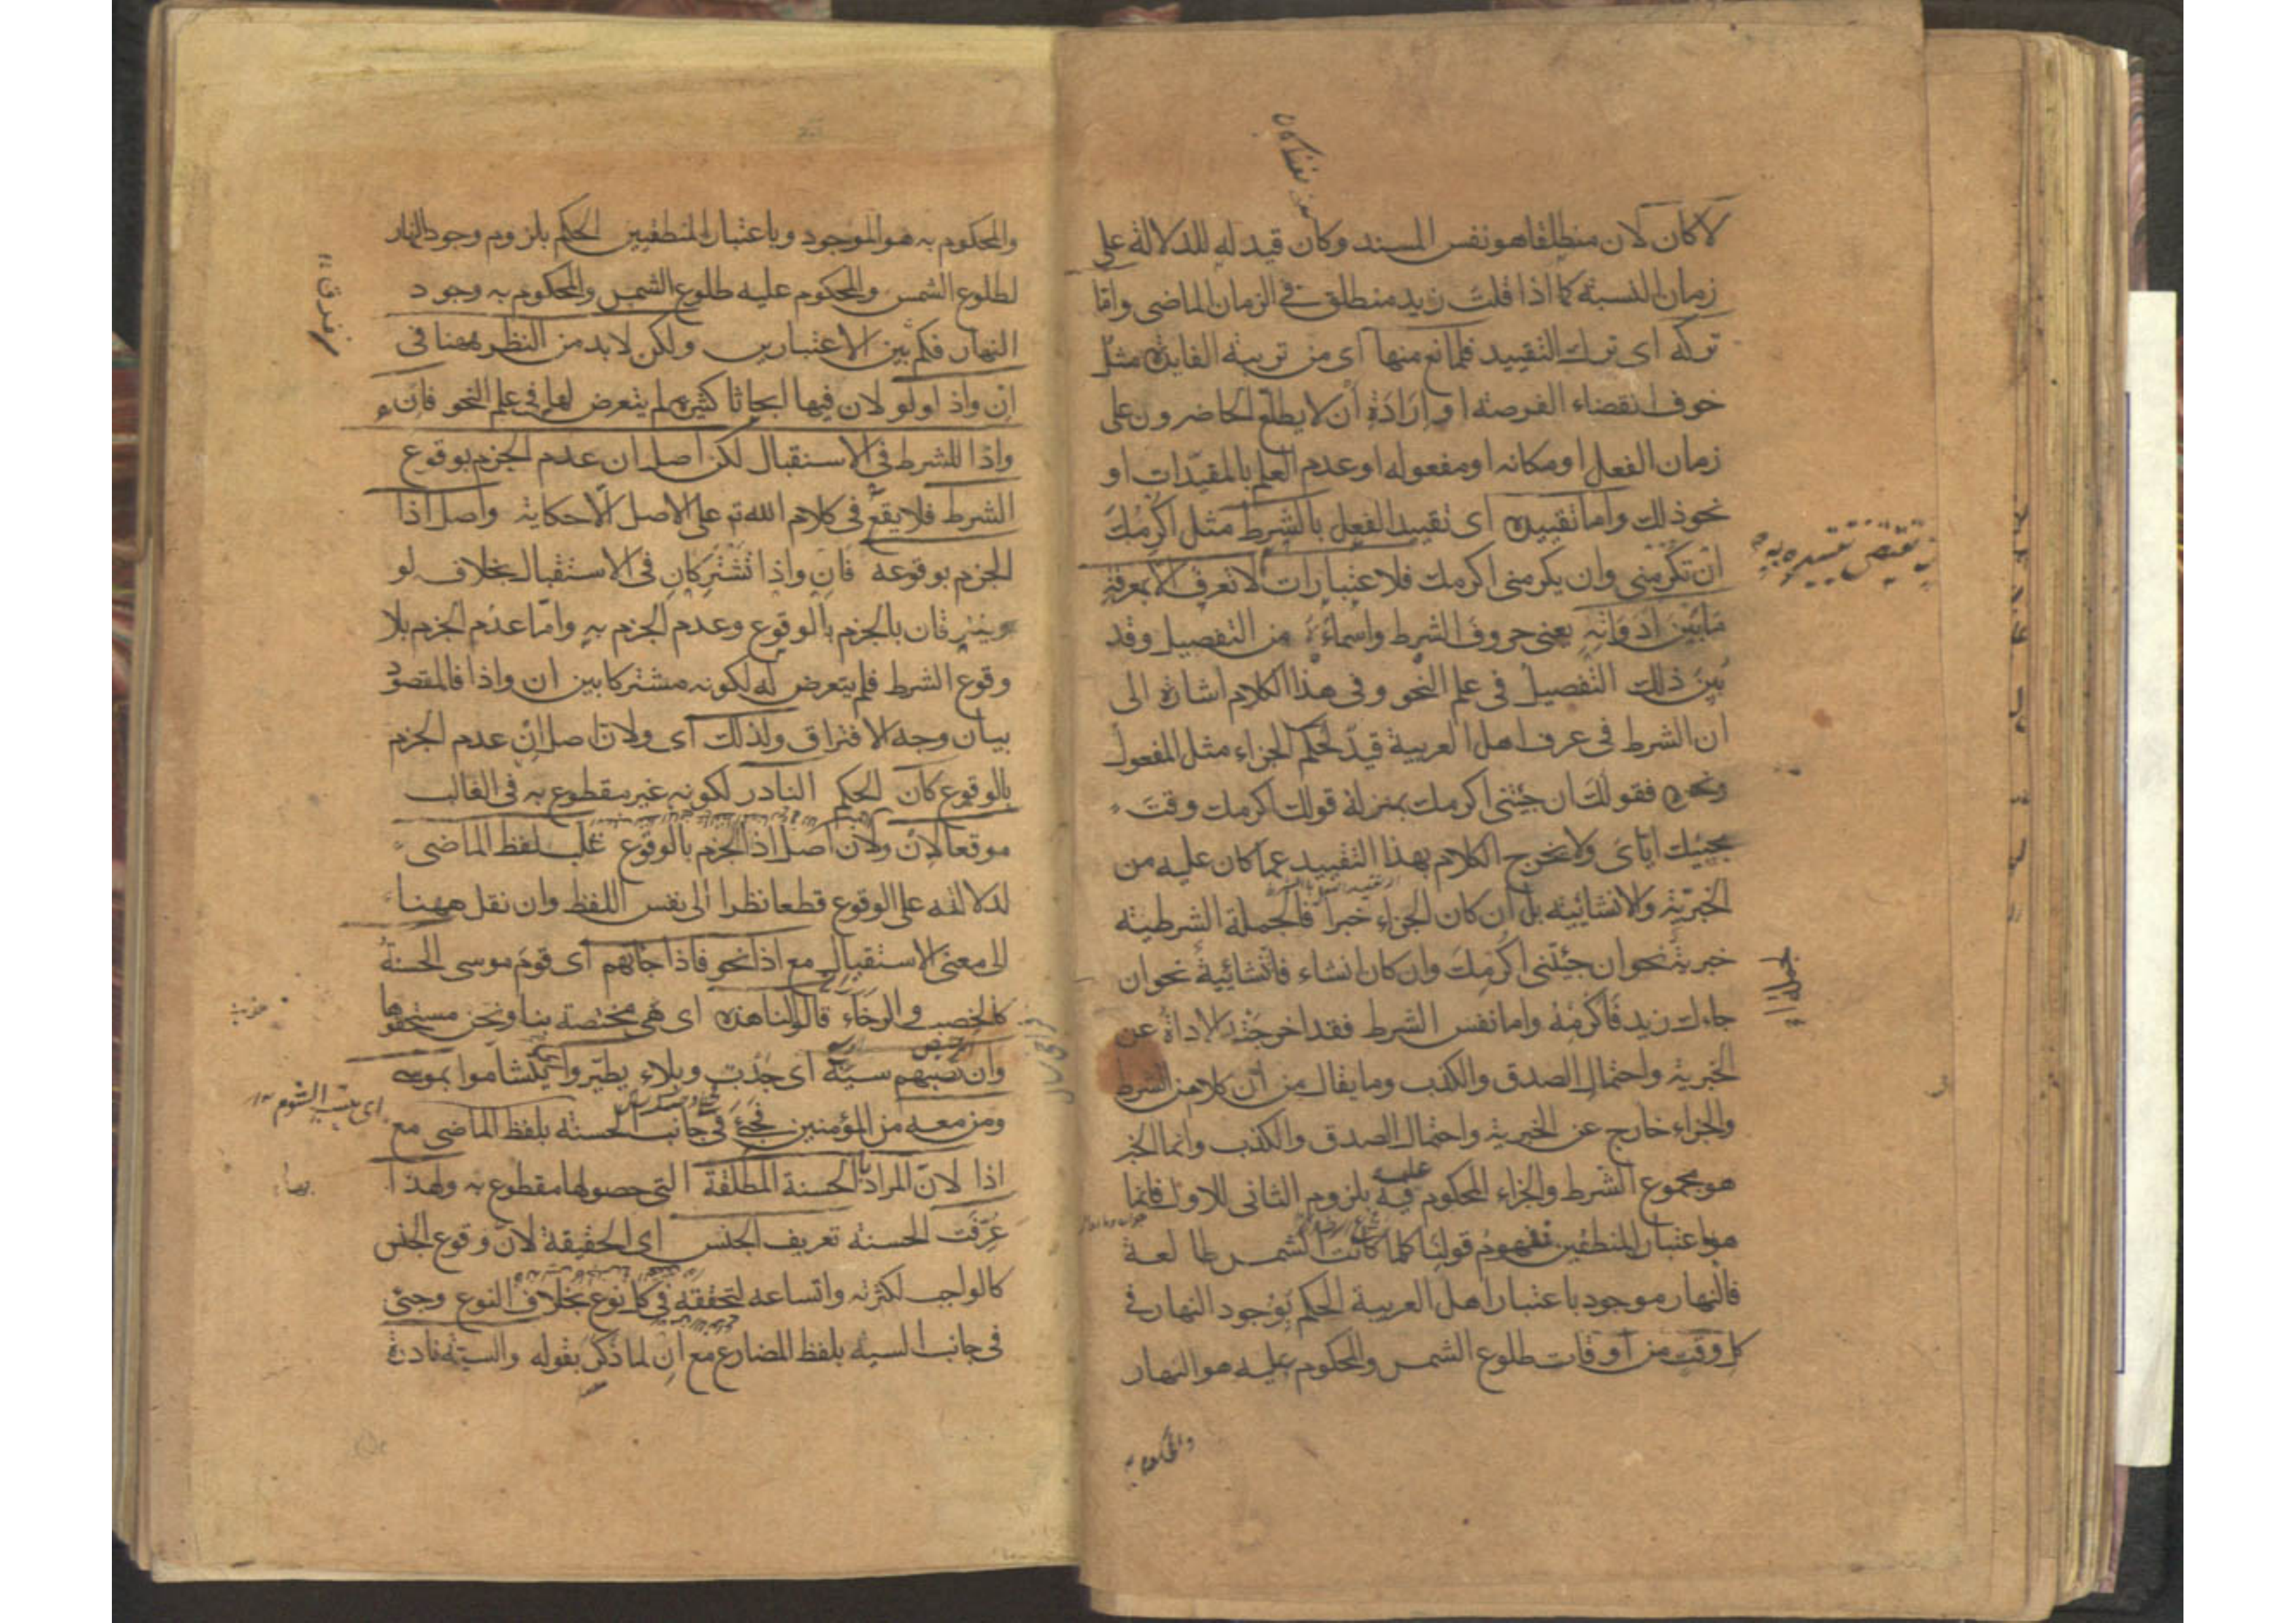 لا كان لان منطلقا هو نفس المسند وكان قيد له للدلالة على
زمان النسبة كما اذا قلت زيد منطلق فى الزمان الماضى واما
تركه اى ترك التقييد فلمانع منها اى من تربية الفايدة مثل
خوف انقضاء الفرصة او ارادة ان لا يطلع الحاضرون على
زمان الفعل او مكانه او مفعوله او عدم العلم بالمقيدات او
نحو ذلك واما تقييده اى تقييد الفعل بالشرط مثل اكرمك
ان تكرمنى وان يكرمنى اكرمك فلاعتبارات لا تعرف الا بمعرفة
ما بين ادواته يعنى حروف الشرط واسماءه من التفصيل وقد
بين ذلك التفصيل فى علم النحو وفى هذا الكلام اشارة الى
ان الشرط فى عرف اهل العربية قيد لحكم الجزاء مثل المفعول
ونحوه فقولك ان جئتنى اكرمك بمنزلة قولك اكرمك وقت
مجيئك اياى ولا نخرج الكلام بهذا التقييد عما كان عليه من
الخبرية والانشائية بل ان كان الجزاء خبرا فالجملة الشرطية
خبرية نحو ان جئتنى اكرمك وان كان انشاء فانشائية نحو ان
جاءك زيد فاكرمه واما نفس الشرط فقد اخرجته الاداة عن
الخبرية واحتمال الصدق والكذب وما يقال من ان كلا من الشرط
والجزاء خارج عن الخبرية واحتمال الصدق والكذب وانما الخبر
عليه
هو مجموع الشرط والجزاء المحكوم فيه بلزوم الثانى للاول فانما
هو اعتبار المنطقيين فمفهوم قولنا كلما كانت الشمس طالعة
فالنهار موجود باعتبار اهل العربية الحكم بوجود النهار فى
كل وقت من اوقات طلوع الشمس والمحكوم عليه هو النهار
والمحكوم به
والمحكوم به هو الموجود وباعتبار المنطقيين الحكم بلزوم وجود النهار
لطلوع الشمس والمحكوم عليه طلوع الشمس والمحكوم به وجود
النهار فكم بين الاعتبارين ولكن لا بد من النظر ههنا فى
ان واذا ولو لان فيها ابحاثا كثيرة لم يتعرض لها فى علم النحو فان
واذا للشرط فى الاستقبال لكن اصل ان عدم الجزم بوقوع
الشرط فلا يقع فى كلام الله تم على الاصل الا حكاية واصل اذا
الجزم بوقوعه فان واذا تشتركان فى الاستقبال بخلاف لو
ويفترقان بالجزم بالوقوع وعدم الجزم به واما عدم الجزم بلا
وقوع الشرط فلم يتعرض له لكونه مشتركا بين ان واذا فالمقصود
بيان وجه الافتراق ولذلك اى ولان اصل ان عدم الجزم
بالوقوع كان الحكم النادر لكونه غير مقطوع به فى الغالب
موقعا لان ولان اصل اذا الجزم بالوقوع غلب لفظ الماضى
لدلالته على الوقوع قطعا نظرا الى نفس اللفظ وان نقل ههنا
الى معنى الاستقبال مع اذا نحو فاذا جاتهم اى قوم موسى الحسنة
كالخصب والرخاء قالوا لنا هذه اى هى مختصة بنا ونحن مستحقوها
وان تصبهم سيئة اى جدب وبلاء يطيروا اى يتشاموا بموسى
ومن معه من المؤمنين فجئ فى جانب الحسنة بلفظ الماضى مع
اذا لان المراد بالحسنة المطلقة التى حصولها مقطوع به ولهذا
عرفت الحسنة تعريف الجنس اى الحقيقة لان وقوع الجنس
كالواجب لكثرته واتساعه لتحققه فى كل نوع بخلاف النوع وجئ
فى جانب السيئة بلفظ المضارع مع ان لما ذكره بقوله والسيئة نادرة